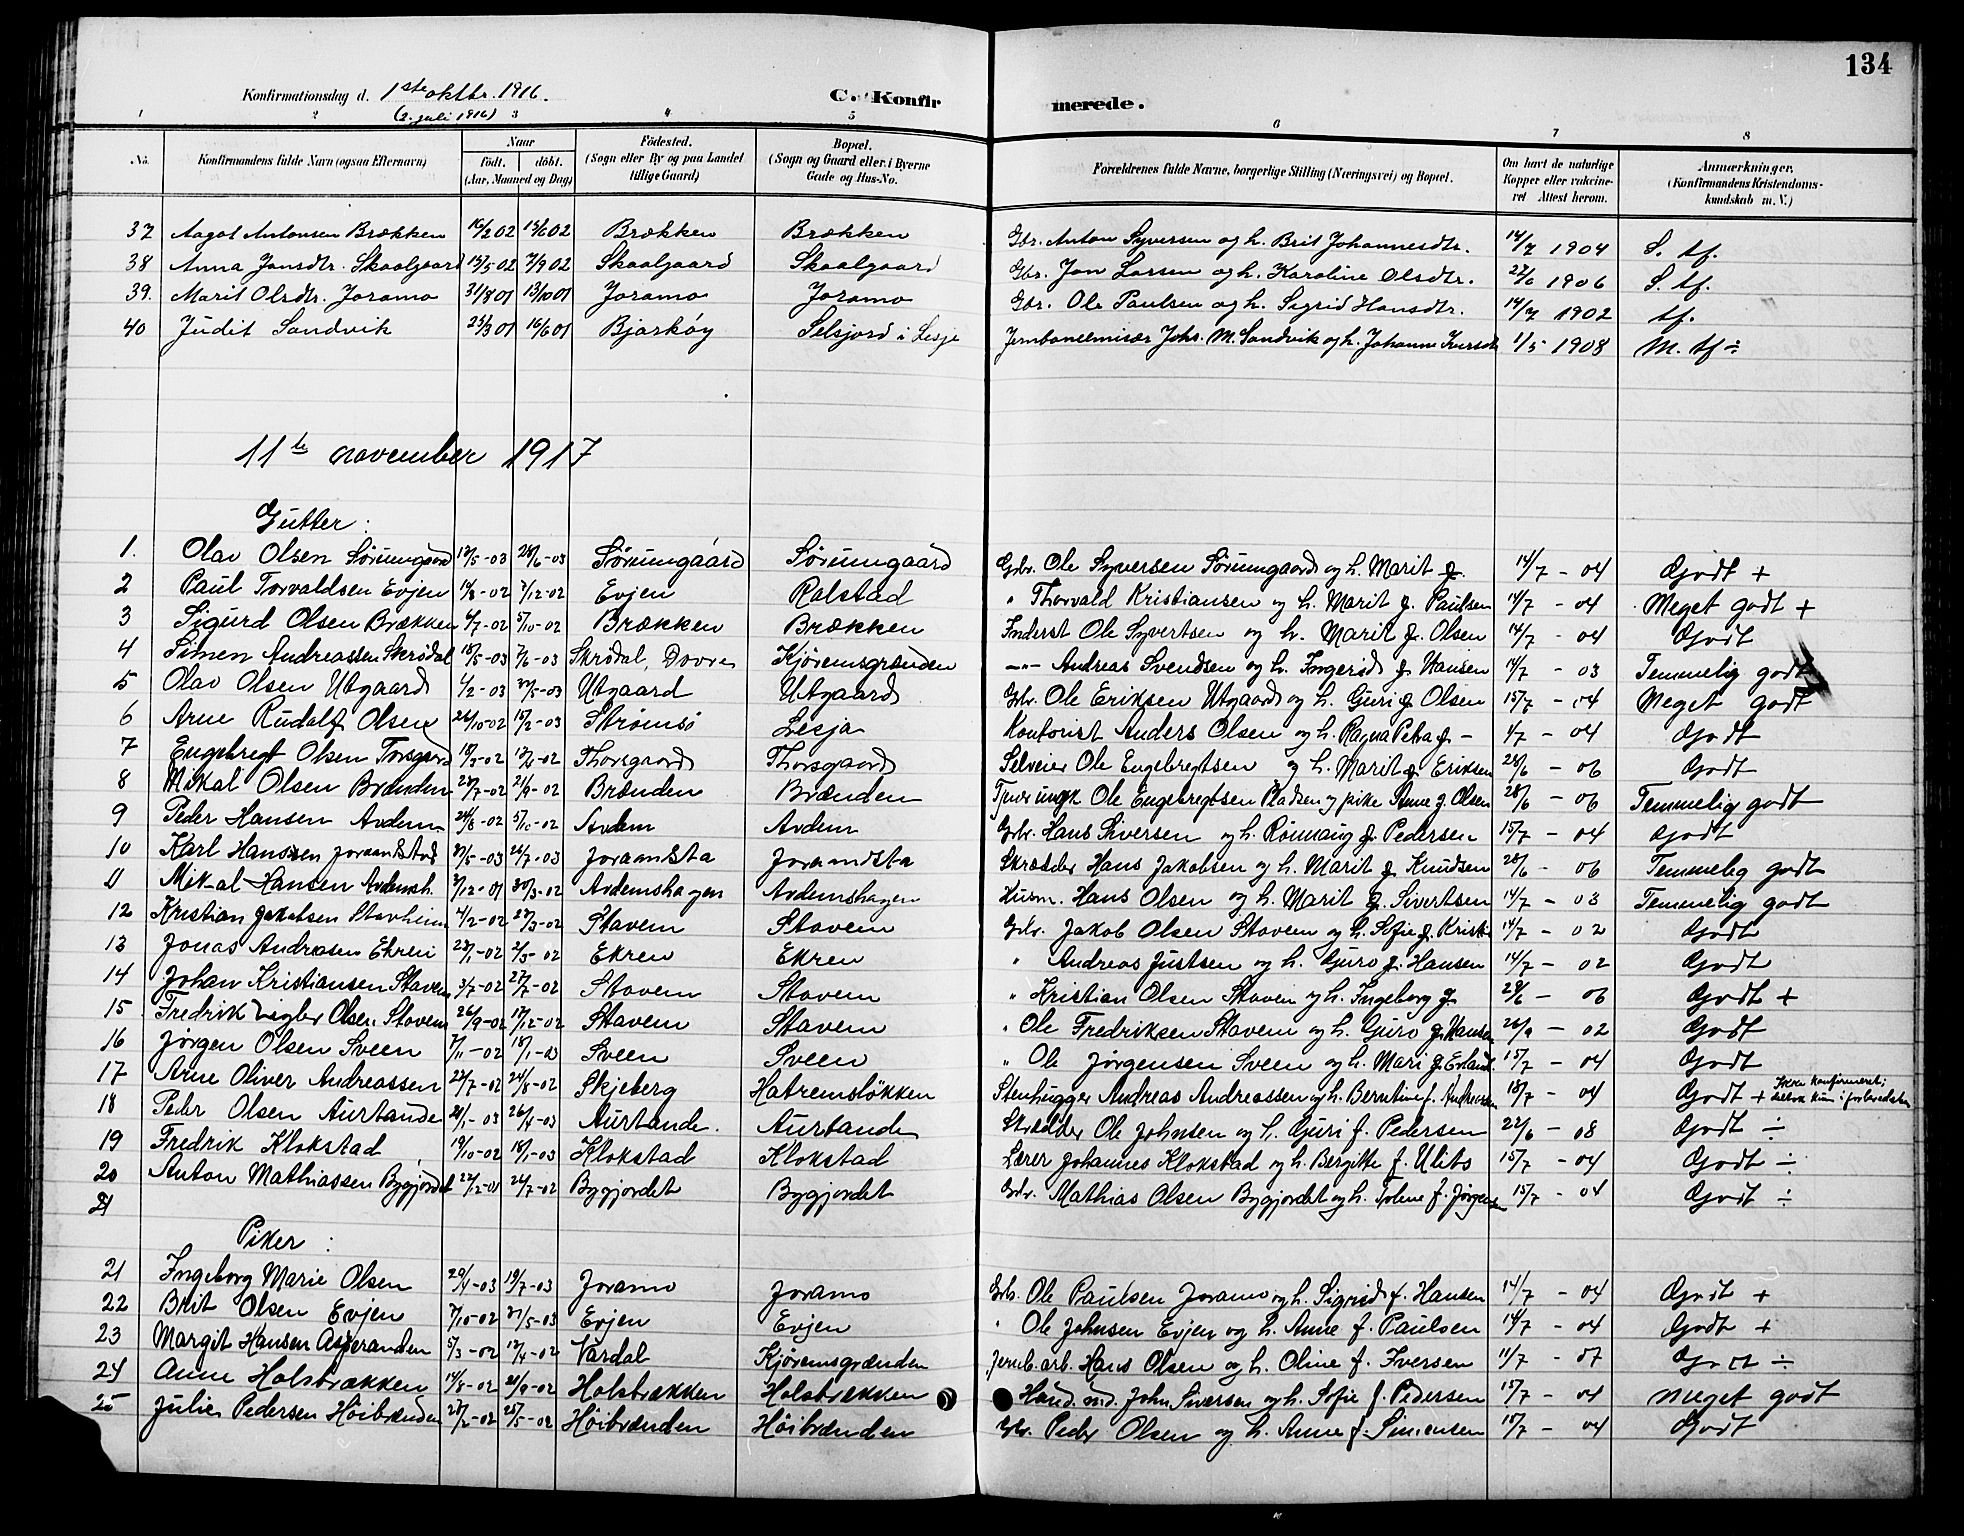 134
Konfirmationsdag d. 1ste oktbr. 1916.
(2. juli 1916)
C. Konfirmerede.
1 2 3 4 5 6 7 8
No. Konfirmandens fulde Navn (ogsaa Efternavn) Naar født. døbt. (Aar, Maaned og Dag) Fødested. (Sogn eller By og paa Landet tillige Gaard) Bopæl. (Sogn og Gaard eller i Byerne Gade og Hus-No. Forældrenes fulde Navne, borgerlige Stilling (Næringsvei) og Bopæl. Om havt de naturlige Kopper eller vakcineret Attest herom. Anmærkninger. (Konfirmandens Kristendomskundskab m. V.)
37 Aagot Antonsen Brækken 16/2 02 15/6 02 Brækken Brækken Gbr. Anton Syversen og h. Brit Johannesdtr. 14/7 1904 S. tf.
38 Anna Jonsdtr. Skaalgaard 13/5 02 7/9 02 Skaalgaard Skaalgaard Gbr. Jon Larsen og h. Karoline Olsdtr. 22/6 1906 S. tf.
39. Marit Olsdtr. Joramo 31/8 01 13/10 01 Joramo Joramo Gbr. Ole Paulsen og h. Sigrid Hansdtr. 14/7 1902 tf.
40 Judit Sandvik 25/3 01 16/6 01 Bjarkøy Selsjord i Lesje Johs. M. Sandvik og h. Johanne 1/5 1908 M. tf ÷
11te november 1917
Gutter:
1. Olav Olsen Sørumgaard 12/5-03 28/6-03 Sørumgaard Sørumgaard Gbr. Ole Syversen Sørumgaard og h. Marit f. 14/7 - 04 Godt +
2 Paul Torvaldsen Evjen 14/8-02 7/12-02 Evjen Rolstad " Thorvald Kristiansen og h. Marit f. Paulsen 14/7 - 04 Meget godt +
3 Sigurd Olsen Brækken 4/7-02 5/10-02 Brækken Brækken Inderst Ole Syvertsen og h. Marit f. Olsen 14/7 - 04 Godt
4 Simen Andreassen Skrødal 18/5-03 7/6-03 Skrødal, Dovre Kjøremsgrænden -"- Andreas Svendsen og h. Ingerid f. Hansen 14/7 - 03 Temmelig godt
5 Olav Olsen Utgaard 4/2-03 Utgaard Utgaard Gbr. Ole Eriksen Utgaard og h. Guri f Olsen 15/7 - 04 Meget godt
6 Arne Rudolf Olsen 26/10-02 15/2-03 Strømsø Lesja Kontorist Anders Olsen og h. Ragna Petra f. - 4/7 - 04 Godt
7 Engebregt Olsen Torsgaard 18/3-02 Thorsgaard Thorsgaard Selveier Ole Engebregtsen og h. Marit f. Eriksen 28/6 - 06 Godt
8 Mikal Olsen Brænden 23/7-02 21/9-02 Brænden Brænden Ole Engebregtsen Pladsen og pike Anne f. Olsen 28/6 - 06 Temmelig godt
9 Peder Hansen Avdem 24/8-02 5/10-02 Avdem Avdem Gbr. Hans Siversen og h. Rønnaug f. Pedersen 15/7 - 04 Godt
10 Karl Hanssen Joramstad 27/5-03 26/7-03 Joramsta Joramdsta Skrædder Hans Jakobsen og h. Marit f. Knudsen 28/6 - 06 Temmelig godt
11 Mikal Hansen Avdemsh. 7/12-01 30/3-02 Avdemshagen Avdemshagen Husm. Hans Olsen og h. Marit f. Sivertsen 14/7 - 03 Temmelig godt
12 Kristian Jakobsen Stavheim 4/2-02 23/3-02 Stavem Stavem Gbr. Jakob Olsen Stavem og h. Sofie f. Kristi 14/7 - 02 Godt
13 Jonas Andreasen Ekren 23/1-02 2/3-02 Ekren Ekren " Andreas Justsen og h. Guro f. Hansen 14/7 - 02 Godt
14 Johan Kristiansen Stavem 3/7-02 27/7-02 Stavem Stavem " Kristian Olsen Stavem og h. Ingeborg f. 29/6 - 06 Godt +
15 Fredrik Olsen Stavem 26/9-02 17/12-02 Stavem Stavem " Ole Fredriksen Stavem og h. Guro f. Hansen 26/9 - 02 Godt
16 Jørgen Olsen Sveen 7/11-02 18/1-03 Sveen Sveen " Ole Jørgensen Sveen og h. Mari f. Erlands. 15/7 - 04 Godt
17 Arne Oliver Andreassen 22/7-02 24/8-02 Skjeberg Hatremsløkken Stenhugger Andreas Andreassen og h. Berntine f. Andreassen 18/7 - 04 Godt + Ikke konfirmeret; deltok kun i forberedelsen
18 Peder Olsen Aurlande 20/1-03 26/4-03 Aurlande. Aurlande Skrædder Ole Johnsen og h. Guri f. Pedersen 22/6 - 08 Godt ÷
19 Fredrik Klokstad 19/10-02 18/1-03 Klokstad Klokstad Lærer Johannes Klokstad og h. Bergitte f. Ulits 15/7 - 04 Godt ÷
20 Anton Mathiassen Bygjordet 22/12-01 20/7-02 Bygjordet Bygjordet Gbr. Mathias Olsen Bygjordet og h. f. Jørgensen 15/7 - 04 Godt ÷
21
Piker:
21 Ingeborg Marie Olsen 29/4-03 19/7-03 Joramo Joramo Gbr. Ole Paulsen Joramo og h. Sigrid f. Hansen 14/7 - 04 Godt +
22 Brit Olsen Evjen 7/10-02 31/5-03 Evjen Evjen " Ole Johnsen Evjen og h. Anne f. Paulsen 14/7 - 04 Godt +
23 Margit Hansen Asperanden 5/3-02 13/4-02 Vardal Kjøremsgrænden Jernb. arb. Hans Olsen og h. Oline f. Iversen 11/7 - 07 Godt ÷
24 Anne Holsbrækken 14/8-02 21/9-02 Holsbrækken Holsbrækken Haand. md. John Siversen og h. Sofie f. Pedersen 15/7 - 04 Meget godt
25 Julie Pedersen Høibrænden 23/2-02 25/5-02 Høibrænden Høibrænden Gbr. Peder Olsen og h. Anne f. Simensen 15/7 - 04 Godt